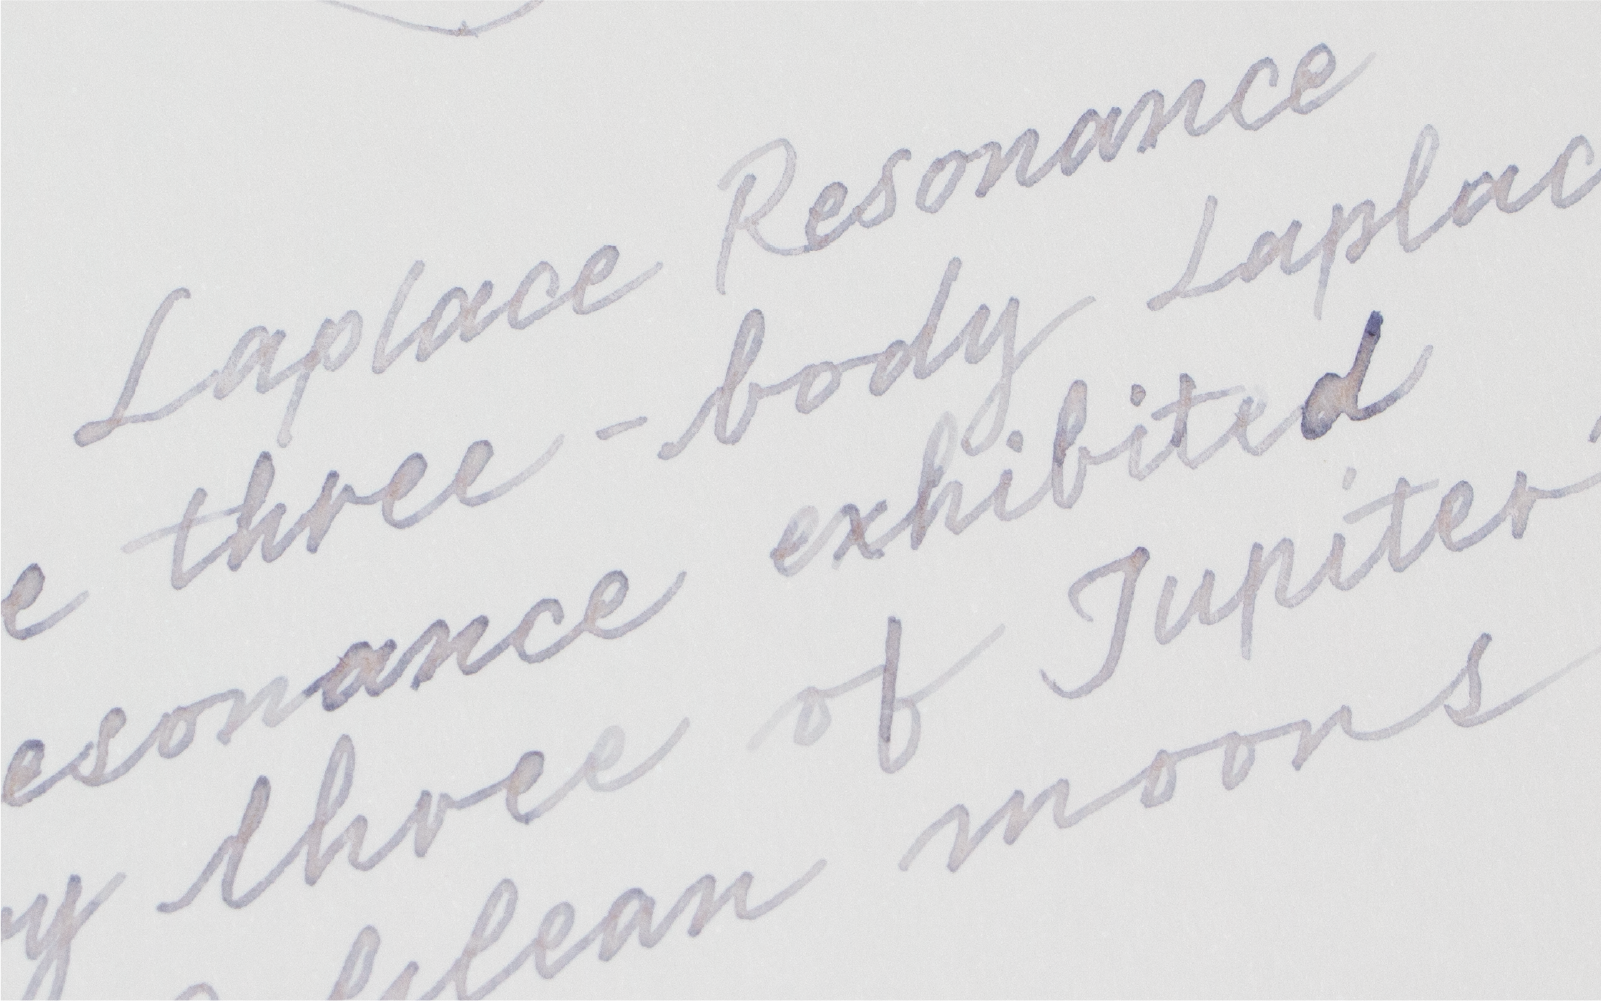 Laplace Resonance
e three-body Laplac
esonance exhibited
y three of Jupiter'
lilean moons